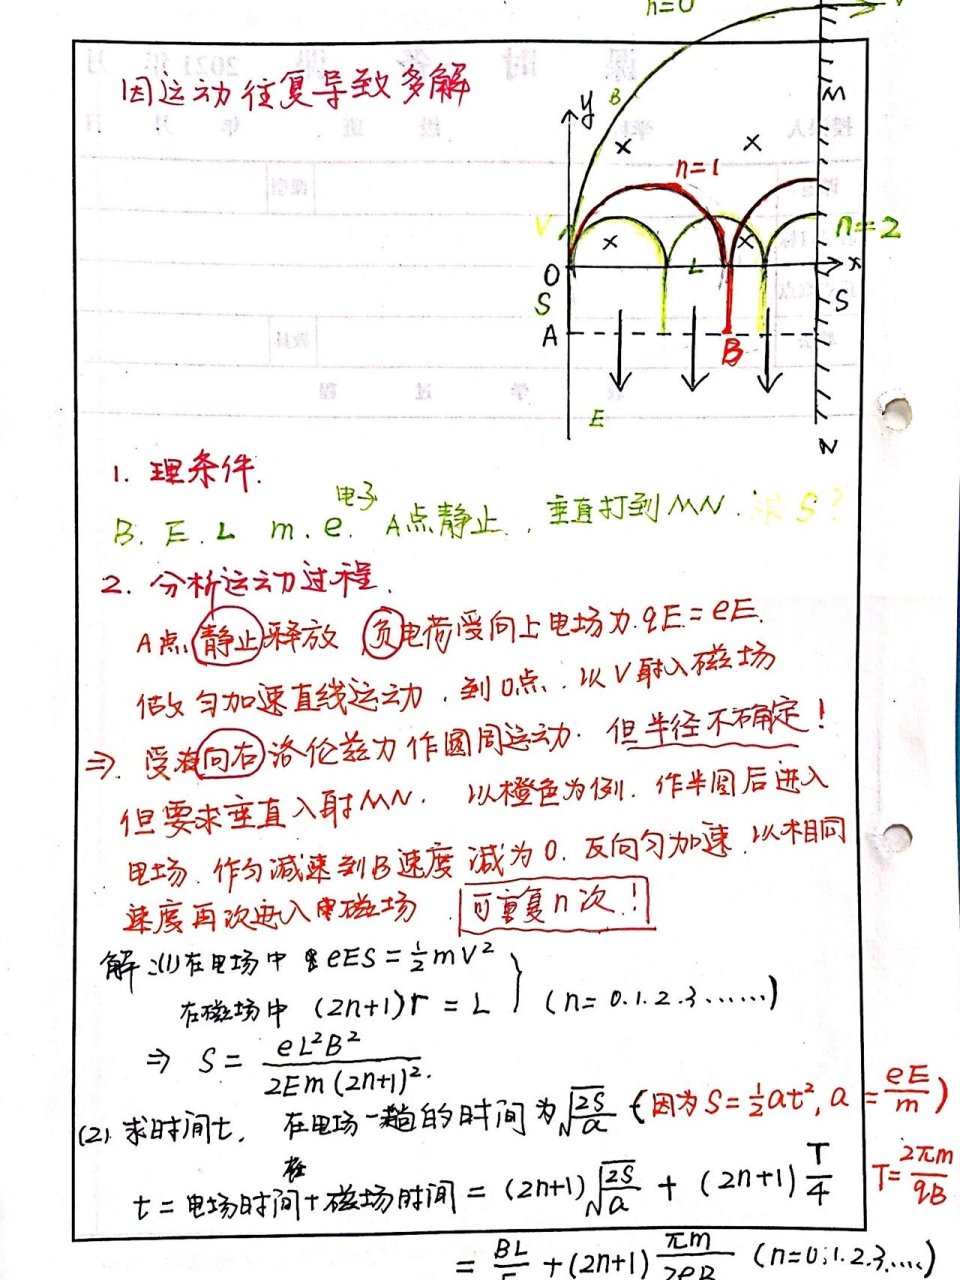 因运动往复导致多解
n=0 V
B y M
× ×
n=1
V × × n=2
O L x
S S
A B
E
N
1. 理条件.
B. E. L m. e. 电子 A点静止. 垂直打到MN. 求S?
2. 分析运动过程.
A点静止释放 负电荷受向上电场力.qE=eE.
做匀加速直线运动.到O点.以V射入磁场
⇒. 受向右洛伦兹力作圆周运动. 但半径不确定!
但要求垂直入射MN. 以橙色为例. 作半圆后进入
电场.作匀减速到B速度减为0.反向匀加速.以相同
速度再次进入磁场. 可重复n次!
解:(1)在电场中 eES=½mV²
在磁场中 (2n+1)r=L } (n=0.1.2.3......)
⇒ S= eL²B²/2Em(2n+1)².
(2). 求时间t. 在电场一趟的时间为√(2S/a) (因为S=½at²,a=eE/m)
t=电场时间+在磁场时间=(2n+1)√(2S/a)+(2n+1)T/4 T=2πm/qB
=BL/E+(2n+1)πm/2eB (n=0.1.2.3....)